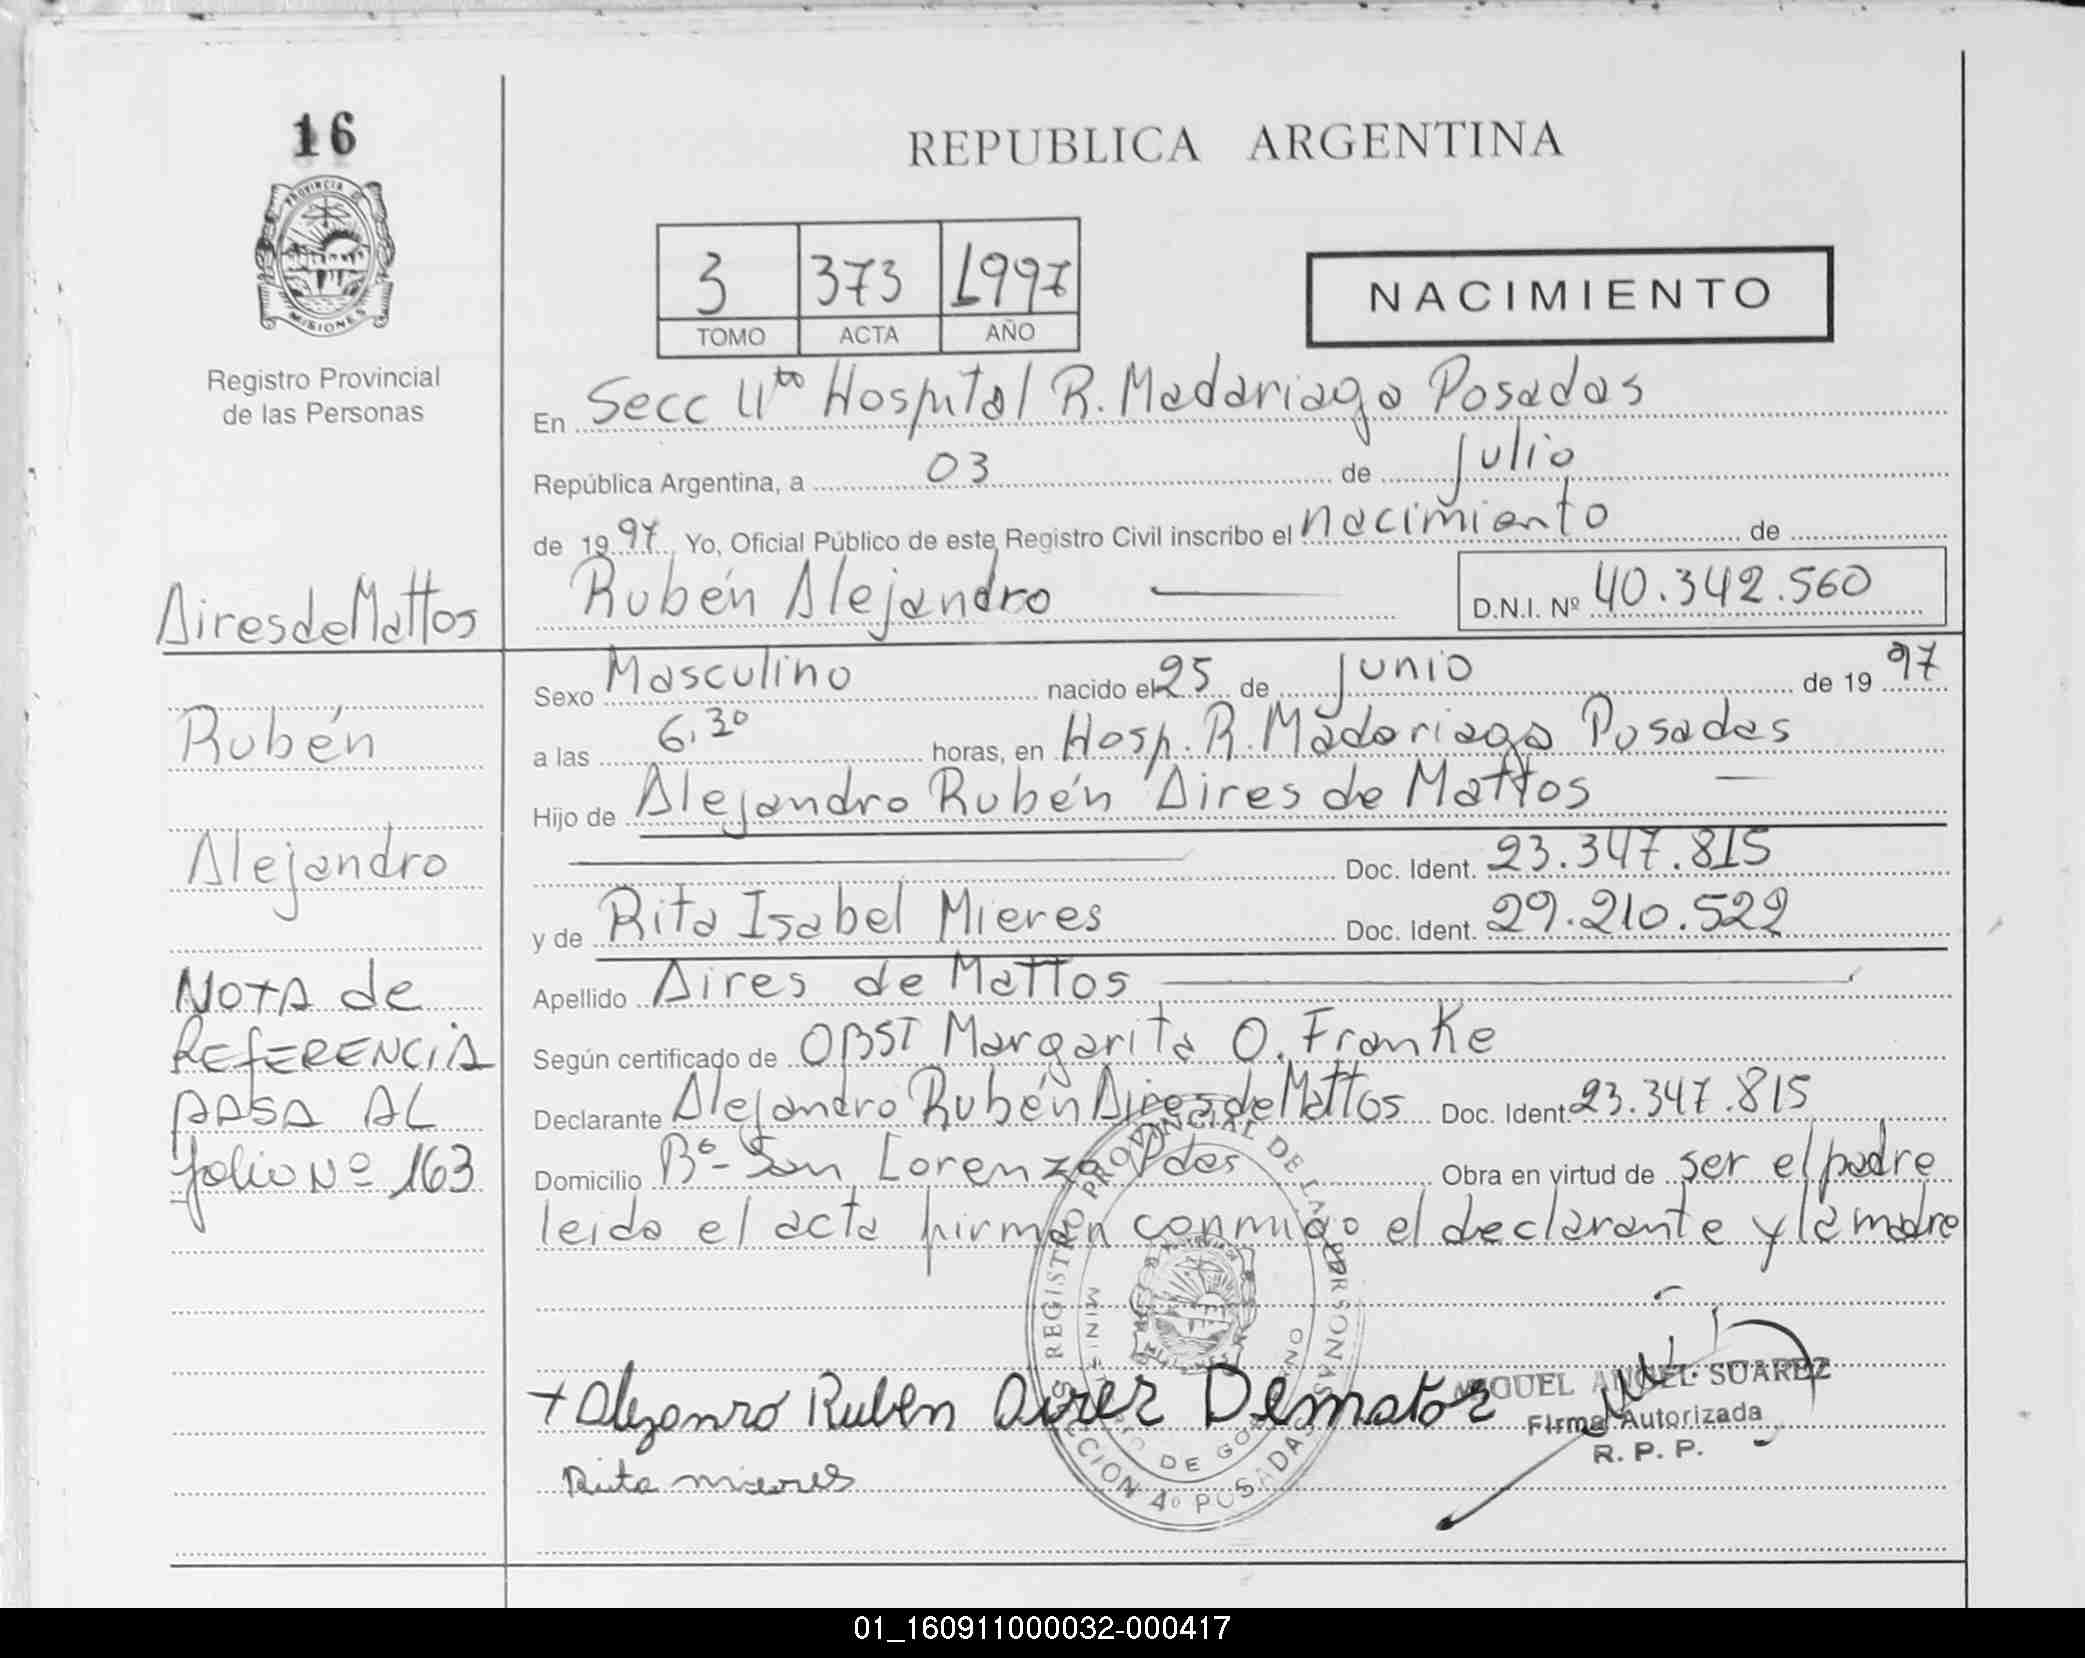 16
PROVINCIA DE
MISIONES
Registro Provincial
de las Personas
Aires de Mattos
Rubén
Alejandro
NOTA de
REFERENCIA
PASA AL
folio Nº 163
REPUBLICA ARGENTINA
3 373 1997
TOMO ACTA AÑO
NACIMIENTO
En Secc 4ta Hospital R. Madariaga Posadas
República Argentina, a 03 de Julio
de 1997 Yo, Oficial Público de este Registro Civil inscribo el nacimiento de
Rubén Alejandro D.N.I. Nº 40.342.560
Sexo Masculino nacido el 25 de Junio de 1997
a las 6,30 horas, en Hosp. R. Madariaga Posadas
Hijo de Alejandro Rubén Aires de Mattos
Doc. Ident. 23.347.815
y de Rita Isabel Mieres Doc. Ident. 29.210.522
Apellido Aires de Mattos
Según certificado de OBST Margarita O. Franke
Declarante Alejandro Rubén Aires de Mattos Doc. Ident. 23.347.815
Domicilio Bº- San Lorenzo Pdas Obra en virtud de ser el padre
leida el acta firman conmigo el declarante y la madre
REGISTRO PROVINCIAL DE LAS PERSONAS
MINISTERIO DE GOBIERNO
SECCION 4º POSADAS
+ Alejanro Ruben Aires Dematos
Rita mieres
MIGUEL ANGEL SUAREZ
Firma Autorizada
R. P. P.
01_160911000032-000417